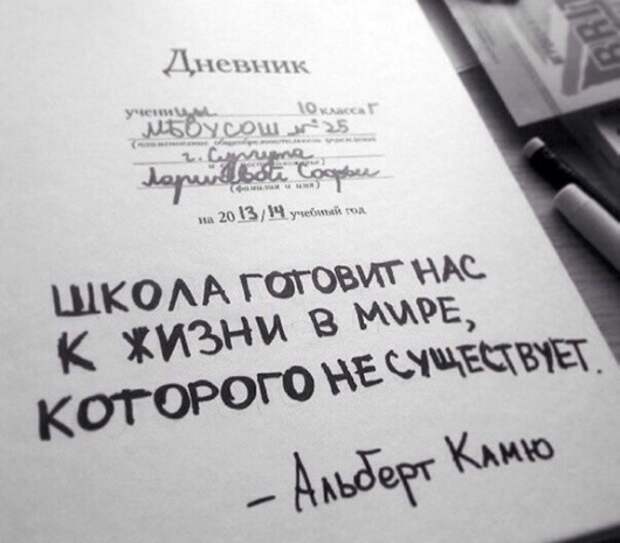 Дневник
ученицы 10 класса Г
МБОУСОШ №25
(наименование общеобразовательного учреждения
г. Сургута
Лариновой Софьи
(фамилия и имя)
на 2013/14 учебный год
ШКОЛА ГОТОВИТ НАС
К ЖИЗНИ В МИРЕ,
КОТОРОГО НЕ СУЩЕСТВУЕТ.
– Альберт Камю